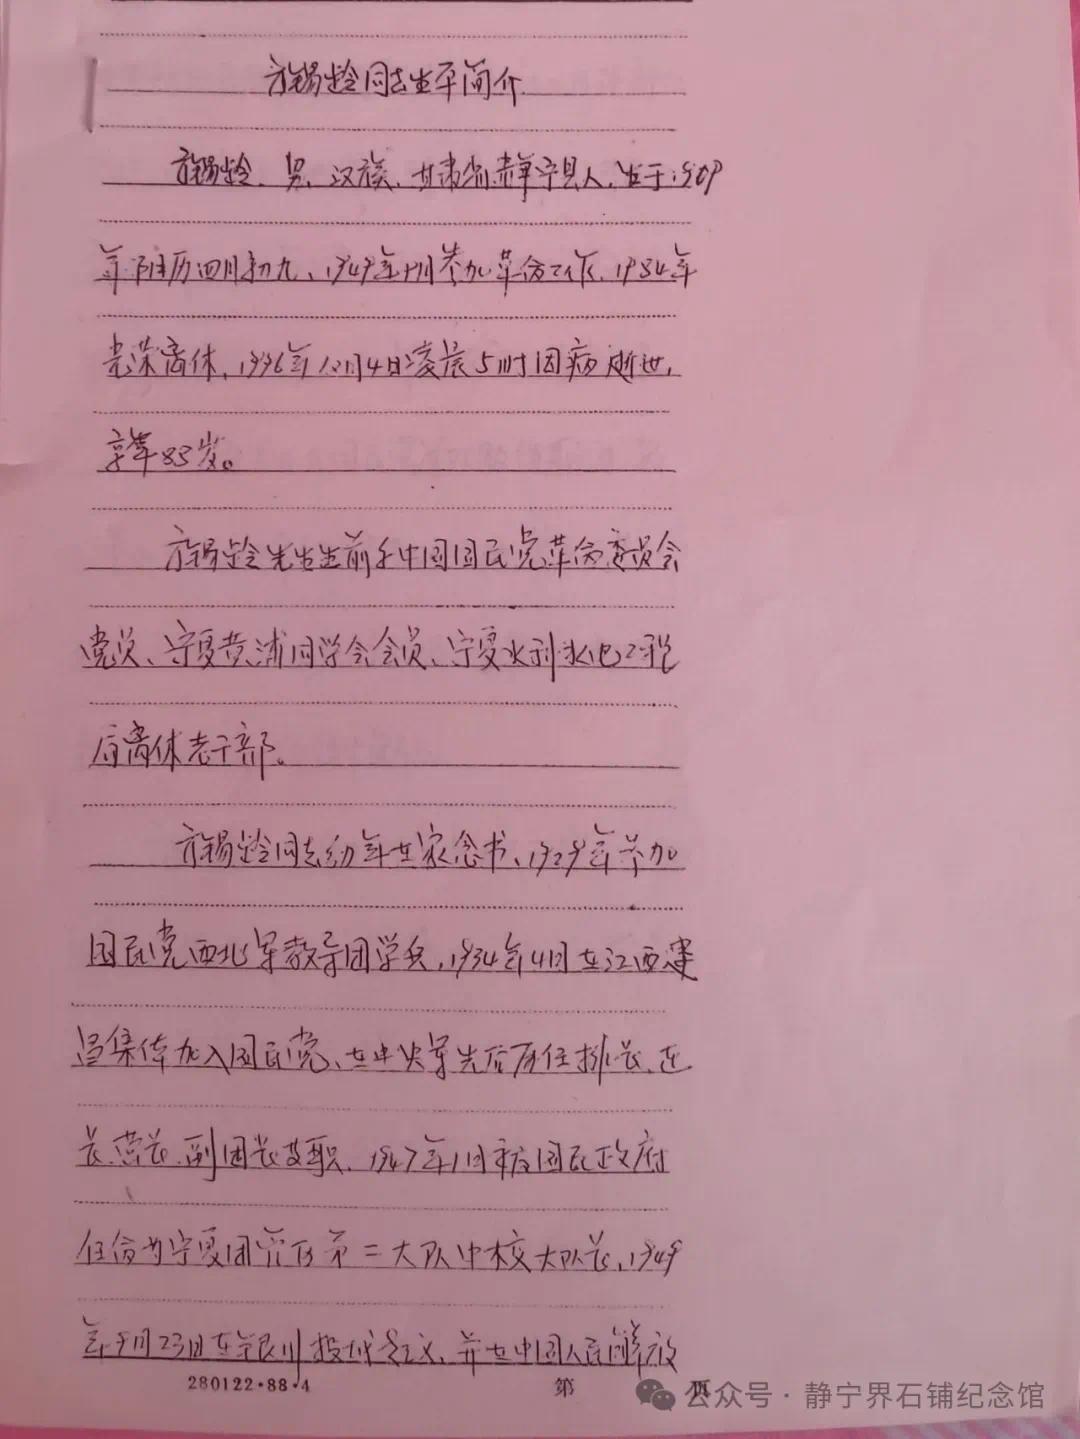 锡龄同志生平简介
锡龄、男、汉族、甘肃省静宁县人、生于1909
年阴历四月初九、1949年十月参加革命工作、1984年
光荣离休，1996年12月4日凌晨5时因病逝世，
享年 岁。
锡龄先生生前系中国国民党革命委员会
党员、宁夏黄浦同学会会员、宁夏水利水电工程
局离休老干部。
锡龄同志幼年在家念书、1929年参加
国民党西北军教导团学兵，1934年4月在江西建
昌集体加入国民党、在中央军先后历任排长、连
长、营长、副团长等职、1947年1月被国民政府
任命为宁夏团管区第二大队中校大队长，1949
年9月23日在银川投诚起义、并在中国人民解放
280122·88·4
第 页
公众号·静宁界石铺纪念馆